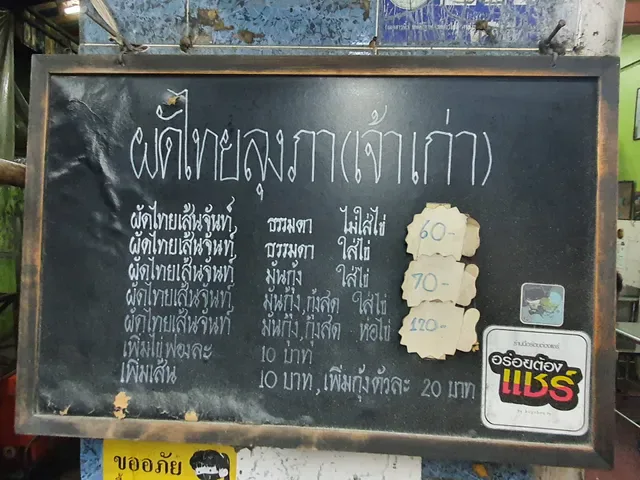 ผัดไทยลุงภา(เจ้าเก่า)
ผัดไทยเส้นจันท์ ธรรมดา ไม่ใส่ไข่
ผัดไทยเส้นจันท์ ธรรมดา ใส่ไข่ 60-
ผัดไทยเส้นจันท์ มันกุ้ง ใส่ไข่
ผัดไทยเส้นจันท์ มันกุ้ง,กุ้งสด ใส่ไข่ 70-
ผัดไทยเส้นจันท์ มันกุ้ง,กุ้งสด ห่อไข่ 120-
เพิ่มไข่ฟองละ 10 บาท
เพิ่มเส้น 10 บาท,เพิ่มกุ้งตัวละ 20 บาท
อร่อยต้อง
แชร์
ขออภัย